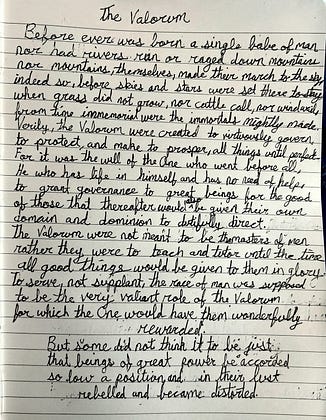 The Valorum
Before ever was born a single babe of man
nor had rivers run or raged down mountains
nor mountains, themselves, made their march to the sky
indeed so, before skies and stars were set there to stay
when grass did not grow, nor cattle call, nor wind
from time immemorial were the immortals mightily made.
Verily, the Valorum were created to virtuously govern,
to protect, and make to prosper, all things until perfect.
For it was the will of the One who went before all,
He who has life in himself and has no need of helps
to grant governance to great beings for the good
of those that thereafter would be given their own
domain and dominion to dutifully direct.
The Valorum were not meant to be the masters of men
rather they were to teach and tutor until the time
all good things would be given to them in glory.
To serve, not supplant, the race of man was supposed
to be the very valiant role of the Valorum
for which the One would have them wonderfully
rewarded.
But some did not think it to be just
that beings of great power be accorded
so low a position and in their lust
rebelled and became distorted.